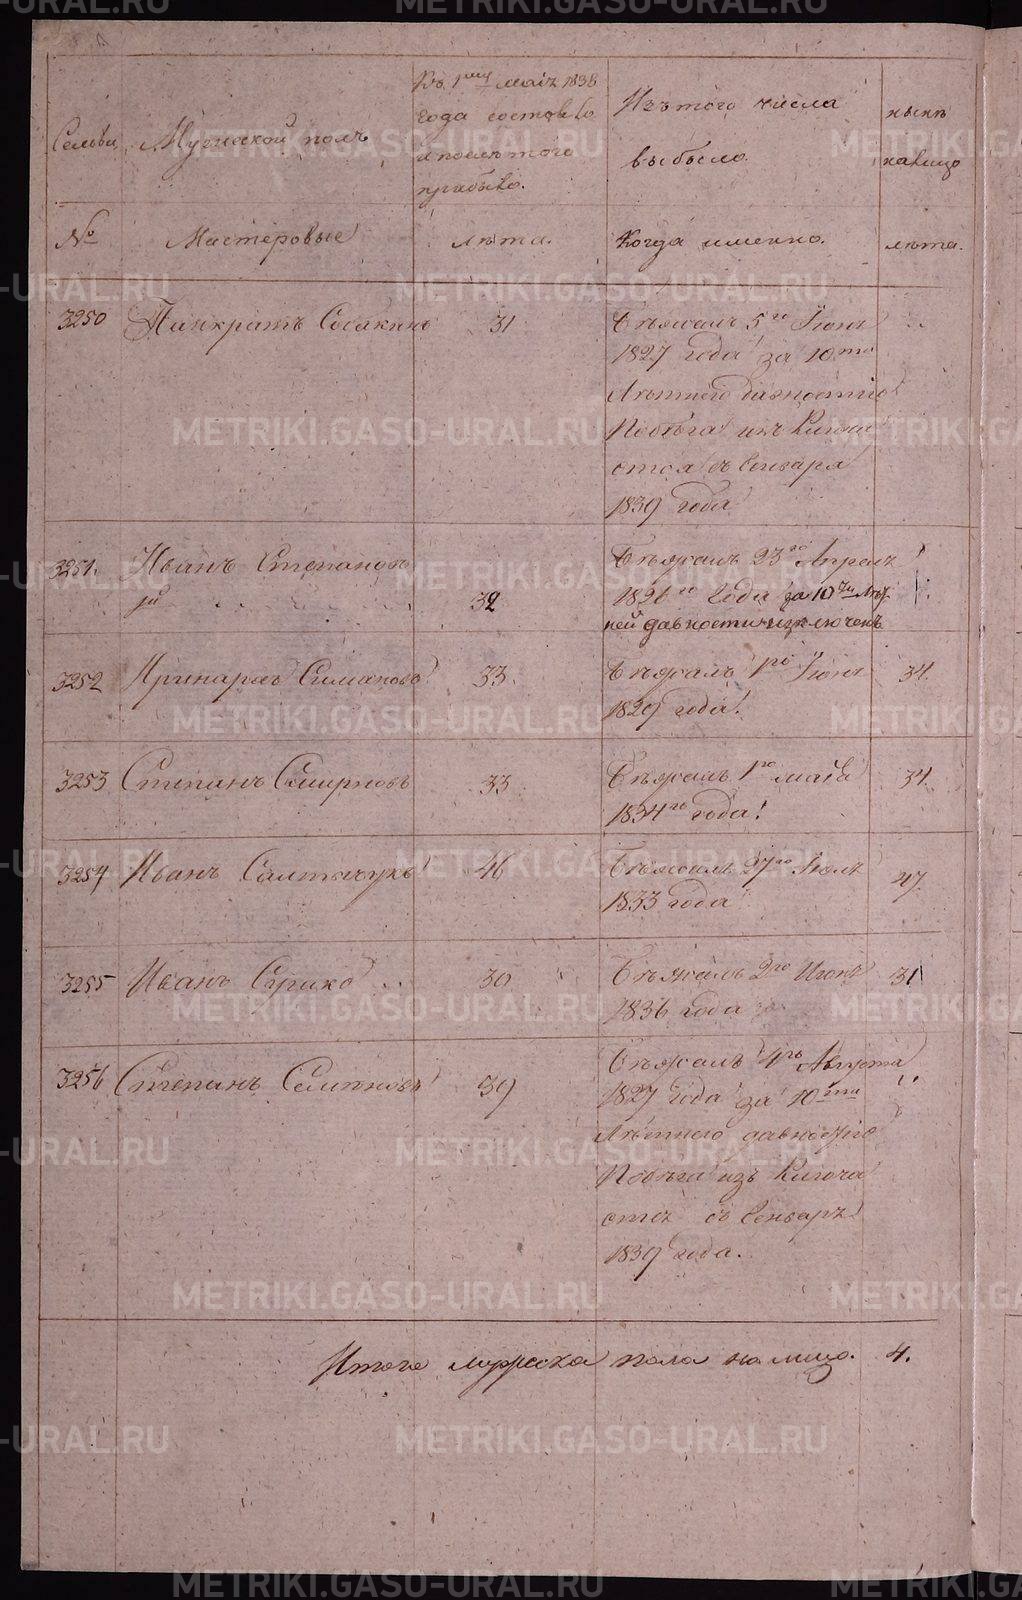 Мужеской полъ
Къ 1му маiя 1838
года состояло
и послѣ того
прибыло.
Изъ того числа
выбыло.
нынѣ
налицо
№
Мастеровые
лѣта.
Когда именно.
лѣта.
3250 Панкратъ Собакинъ 31
Бѣжалъ 5го Iюня
1827 года за 10ти
Лѣтнею давностiю
Побѣга изъ Ключа
ется съ Генваря
1839 года
3251. Иванъ Степановъ 32
Бѣжалъ 23го Апреля
1826го Года за 10ти Лѣт
ней давности изключенъ
3252 Симаковъ 33.
Бѣжалъ 1го Iюня
1829 года.
34.
3253 Степанъ Смирновъ 33
Бѣжалъ 1го маiя
1834го года.
34.
3254 Иванъ Салтанчукъ 46
Бѣжалъ 27го Iюля
1833 года
47.
3255 Иванъ 30
Бѣжалъ 2го Июня
1836 года
31
3256 Степанъ Семеновъ 39
Бѣжалъ 4го Августа
1827 Года за 10ти
Лѣтнею давностiю
Побѣга изъ Ключа
ется съ Генваря
1839 года.
Итого мужеска пола на лицо. 4.
METRIKI.GASO-URAL.RU